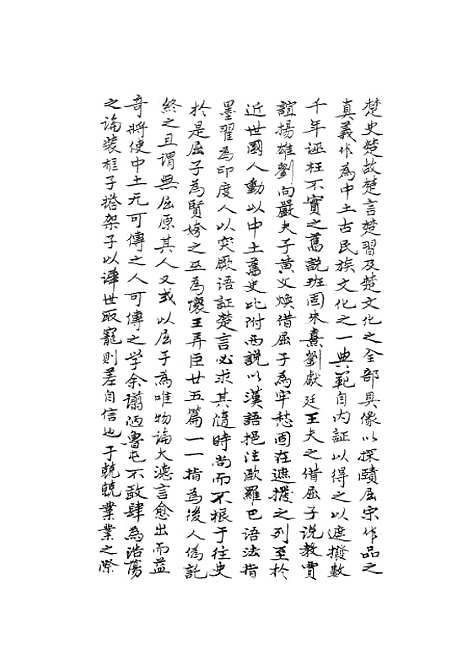 楚史楚故楚言楚習及楚文化之全部具像以探賾屈宋作品之
真義作為中土古民族文化之一典範自内証以得之以遮撥數
千年誣枉不實之舊説班固朱熹劉獻廷王夫之借屈子説教賈
誼揚雄劉向嚴夫子黄文焕借屈子為牢愁固在遮撥之列至於
近世國人動以中土舊史比附西説以漢語挹注歐羅巴语法指
墨翟為印度人以突厥语証楚言必求其隨時尚而不根于往史
於是屈子為賢姱之巫為懷王弄臣廿五篇一一指為後人偽託
終之且謂無屈原其人又或以屈子為唯物論大濾言愈出而益
奇將使中土无可傳之人可傳之学余谫陋魯屯不敢肆為浩蕩
之論装框子搭架子以譁世取寵則差自信也于兢兢業業之際